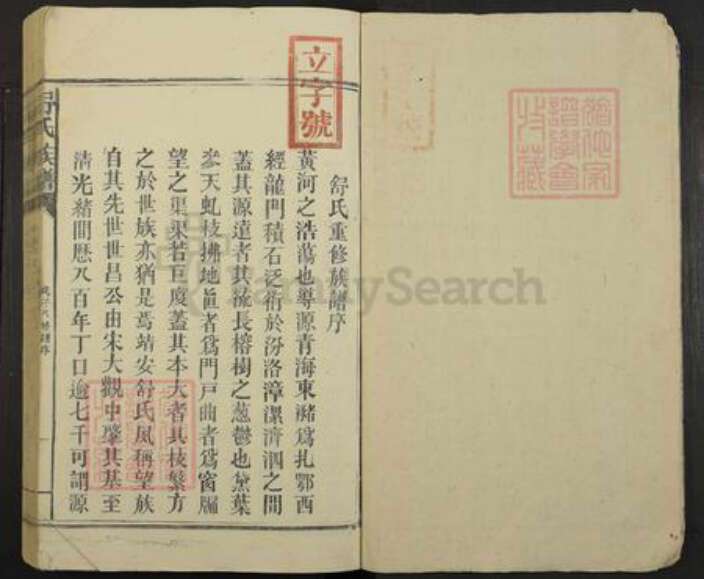 立字號
舒氏重修族譜序
黃河之浩蕩也導源青海東瀦爲扎鄂西
經龍門積石泛衍於汾洛漳漯濟泗之間
蓋其源遠者其流長榕樹之葱鬱也黛葉
參天虬枝拂地直者爲門戸曲者爲窗牖
望之渠渠若巨廈蓋其本大者其枝繁方
之於世族亦猶是焉靖安舒氏夙稱望族
自其先世世昌公由宋大觀中肇其基至
清光緒間歷八百年丁口逾七千可謂源
舒氏族譜
FamilySearch